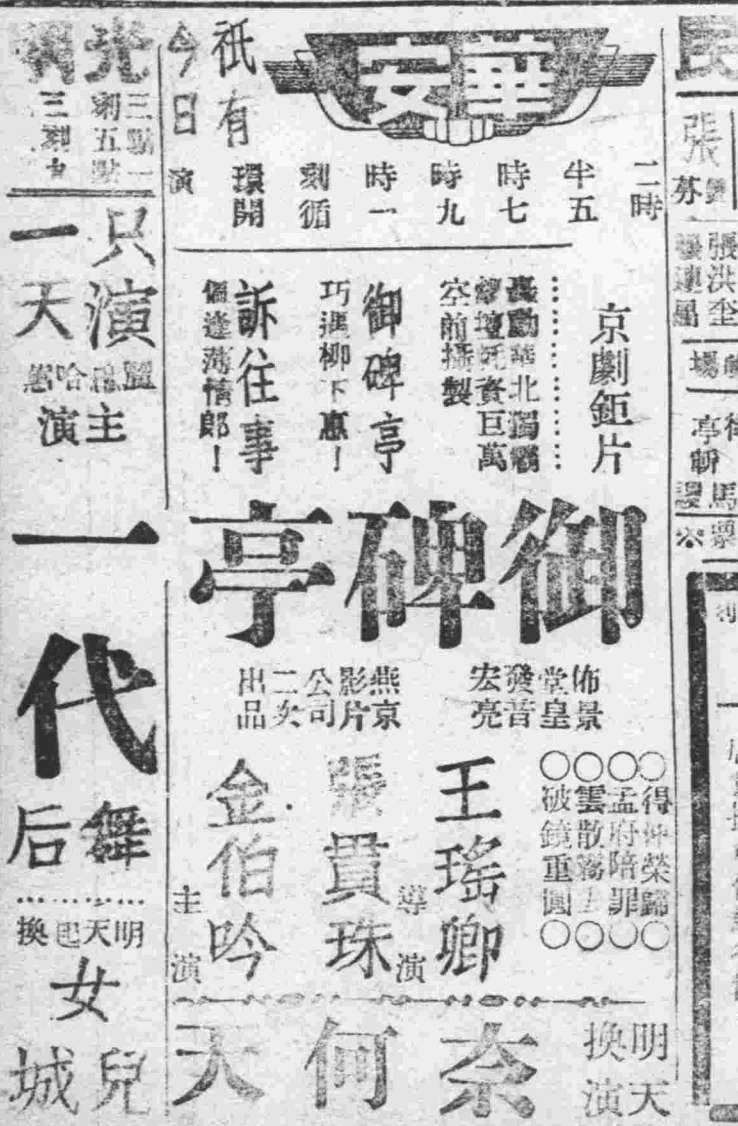 華安
祇有
今日
二時
半五
時七
時九
時一
刻循
環開
演
京劇鉅片
轟動華北獨霸
劇壇耗資巨萬
空前攝製
御碑亭
巧遇柳下惠！
訴往事
偏逢薄情郎！
御碑亭
佈景
堂皇
發音
宏亮
燕京
影片
公司
二次
出品
○得仲榮歸○
○孟府陪罪○
○雲散霧○
○破鏡重圓○
王瑤卿
導演
張貫珠
金伯吟
主演
明天
換演
奈何天
光明
三點一
刻五點
三刻九
只演
一天
主演
一代
舞后
明天起換
女
兒城
民
張
張洪奎